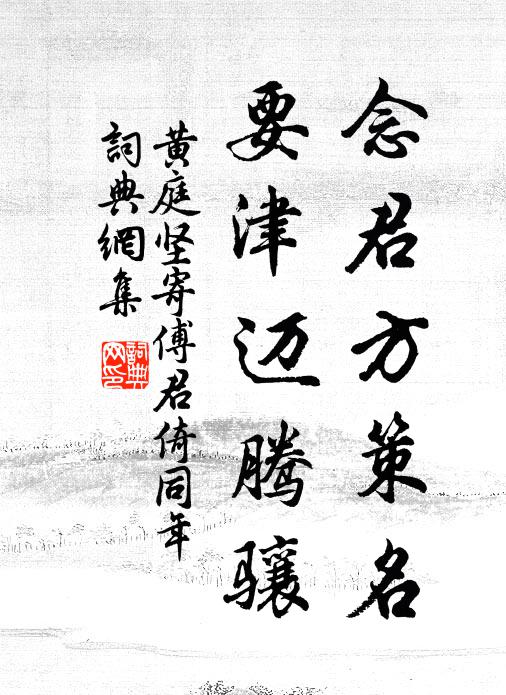 念君方策名
要津迈腾骧
黄庭坚寄傅君倚同年
詞典網集
詞典
网印